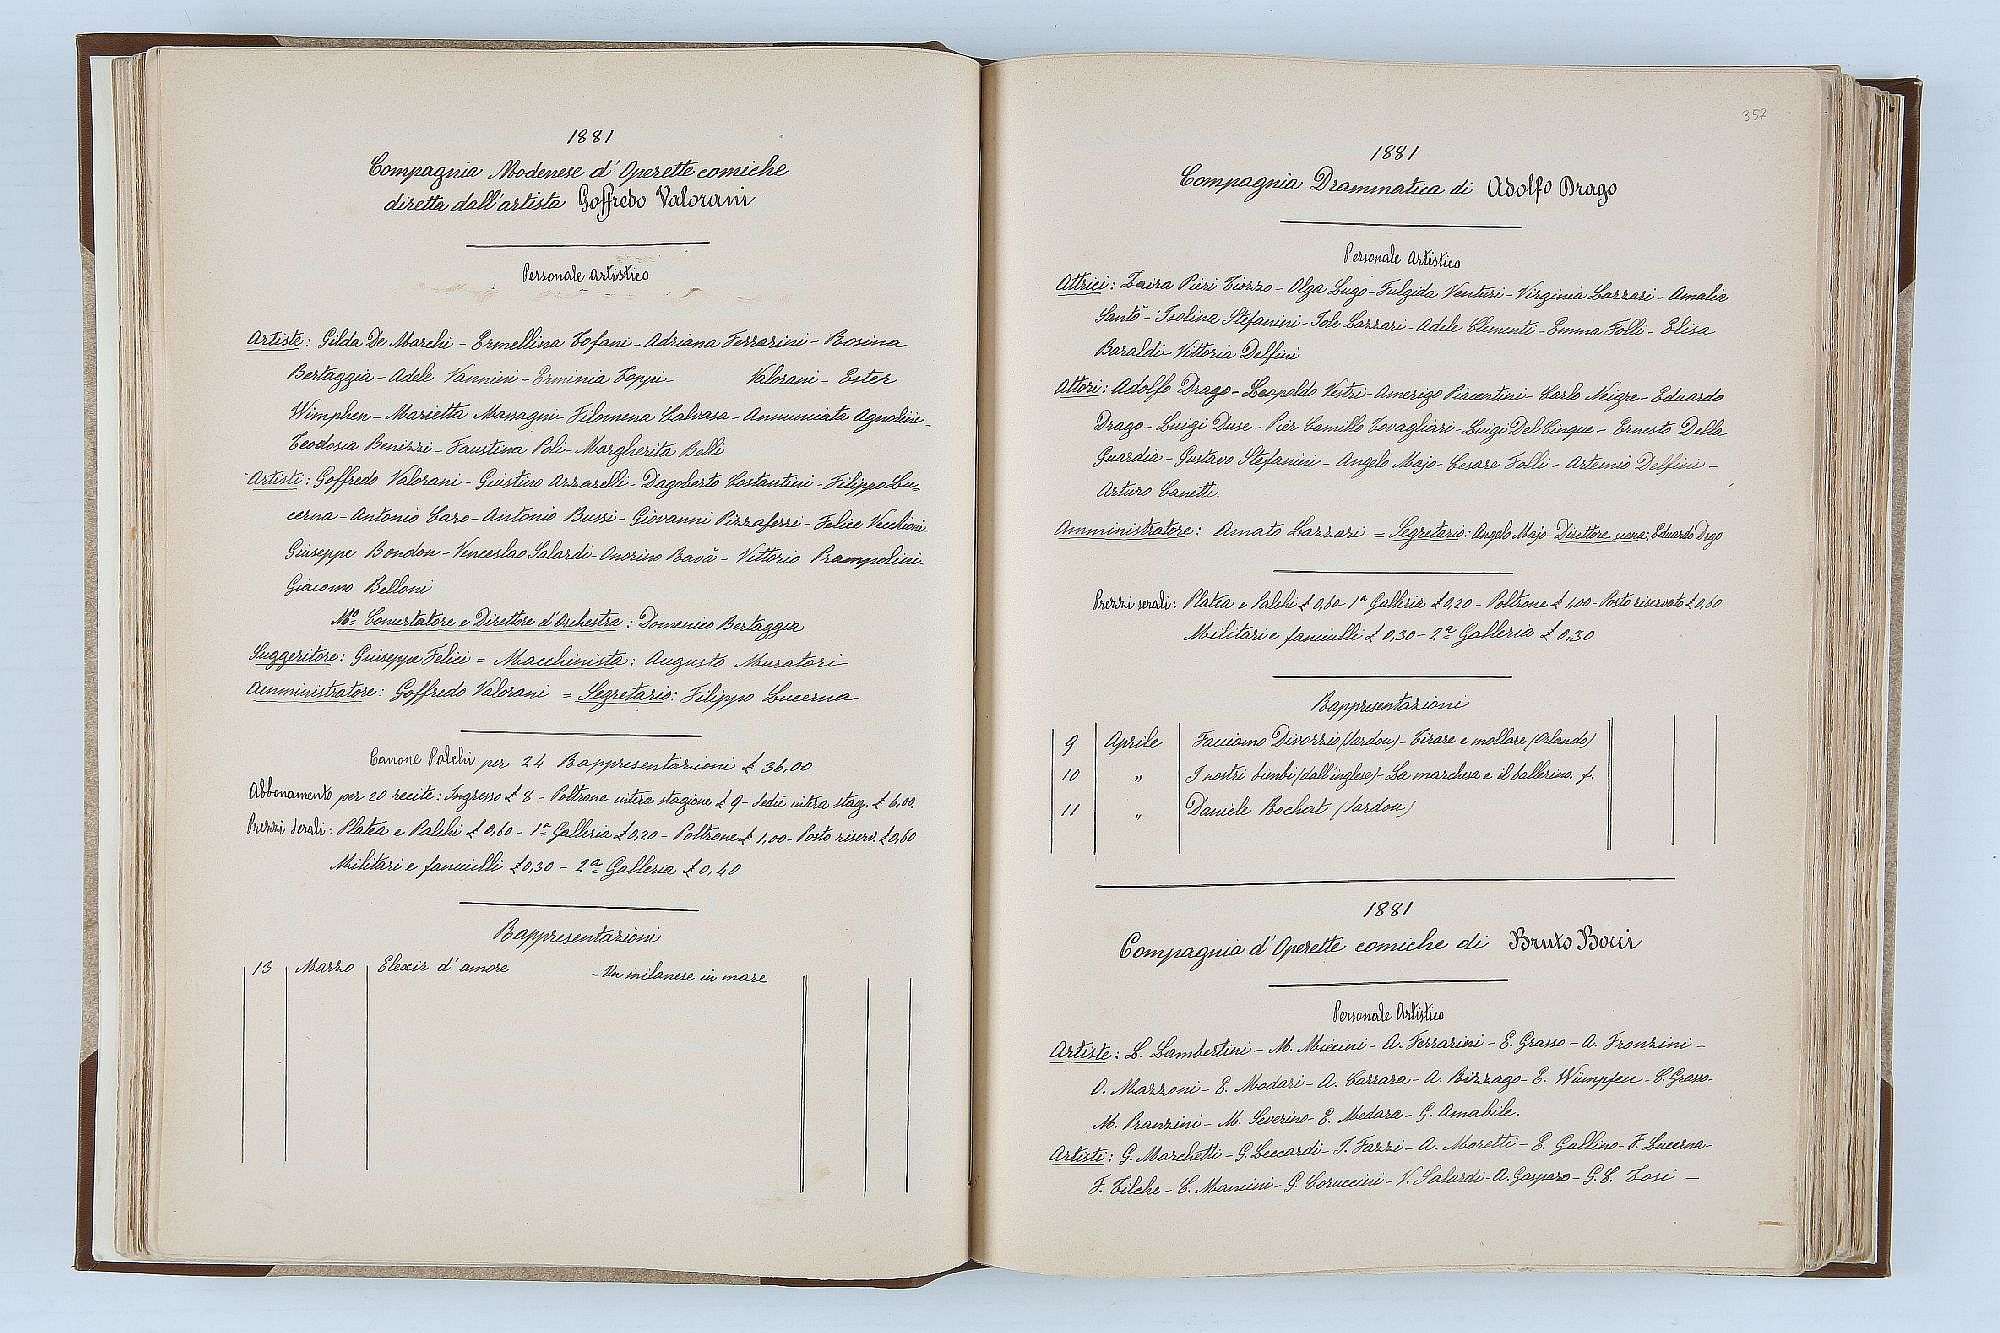 1881
Compagnia Modenese d'Operette comiche
diretta dall'artista Goffredo Valorani
Personale artistico
Artiste: Gilda De Marchi - Ermellina Tofani - Adriana Ferrarini - Rosina
Bertaggia - Adele Vannini - Erminia Toppi - Valorani - Ester
Wimphen - Marietta Massagni - Filomena Calvasa - Annunciata Agnolini -
Teodosia Benizzi - Faustina Poli - Margherita Belli
Artisti: Goffredo Valorani - Giustino Azzarelli - Dagoberto Costantini - Filippo Lu=
cerna - Antonio Caro - Antonio Bussi - Giovanni Pizzaferri - Felice Vecchioni
Giuseppe Bondon - Venceslao Salardi - Onorino Bavà - Vittorio Prampolini -
Giacomo Belloni
Mo. Concertatore e Direttore d'Orchestra: Domenico Bertaggia
Suggeritore: Giuseppe Felici = Macchinista: Augusto Muratori
Amministratore: Goffredo Valorani = Segretario: Filippo Lucerna
Canone Palchi per 24 Rappresentazioni £ 36,00
Abbonamento per 20 recite: Ingresso £ 8 - Poltrone intera stagione £ 9 - Sedie intera stag. £ 6,00
Prezzi Serali: Platea e Palchi £ 0,60 - 1a Galleria £ 0,20 - Poltrone £ 1,00 - Posto riserv. £ 0,60
Militari e fanciulli £ 0,30 - 2a Galleria £ 0,40
Rappresentazioni
13 Marzo Elexir d'amore - Un milanese in mare
357
1881
Compagnia Drammatica di Adolfo Drago
Personale Artistico
Attrici: Zaira Pieri Tiozzo - Olga Lugo - Fulgida Venturi - Virginia Lazzari - Amalia
Santò - Isolina Stefanini - Iole Lazzari - Adele Clementi - Emma Folli - Elisa
Baraldi - Vittoria Delfini
Attori: Adolfo Drago - Leopoldo Vestri - Amerigo Piacentini - Carlo Neigre - Eduardo
Drago - Luigi Duse - Pier Camillo Tovagliari - Luigi Del Cinque - Ernesto Della
Guardia - Gustavo Stefanini - Angelo Majo - Cesare Folli - Artemio Delfini -
Arturo Canetti.
Amministratore: Amato Lazzari = Segretario: Angelo Majo Direttore scena: Eduardo Drgo
Prezzi serali: Platea e Palchi £ 0,60 - 1a Galleria £ 0,20 - Poltrone £ 1,00 - Posto riservato £ 0,60
Militari e fanciulli £ 0,30 - 2a Galleria £ 0,30
Rappresentazioni
9 Aprile Facciamo Divorzio (Sardou) - Tirare e mollare (Orlando)
10 " I nostri bimbi (dall'inglese) - La marchesa e il ballerino. f.
11 " Daniele Rochat (Sardou)
1881
Compagnia d'Operette comiche di Bruto Bocci
Personale Artistico
Artiste: L. Lambertini - M. Miccini - A. Ferrarini - E. Grasso - A. Franzini -
O. Mazzoni - E. Modari - A. Carrara - A. Bizzago - E. Wumpfen - C. Grasso -
M. Pranzini - M. Severino - E. Medara - G. Amabile.
Artisti: G. Marchetti - G. Leccardi - I. Fazzi - A. Moretti - E. Gallino - F. Lucerna -
F. Tilche - C. Mancini - G. Coruccini - V. Salardi - A. Gasparo - G. C. Tosi -